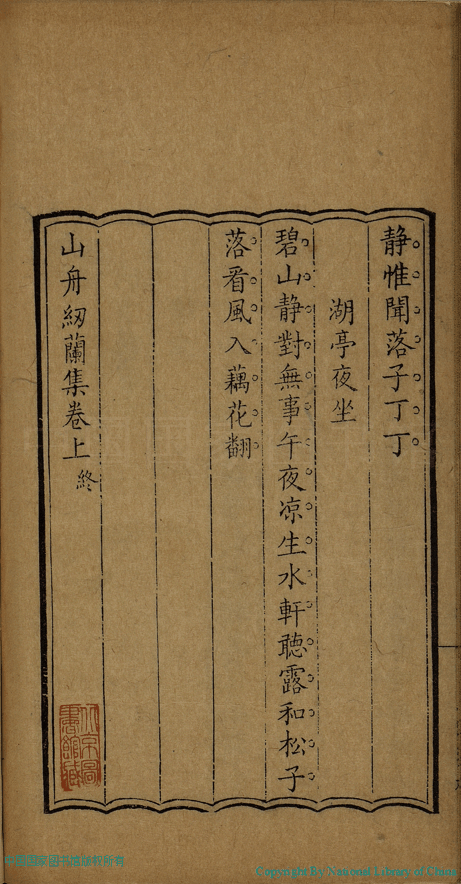 静惟聞落子丁丁
湖亭夜坐
碧山静對無事午夜凉生水軒聽露和松子
落看風入藕花翻
山舟紉蘭集卷上終
北京圖
書館藏
Copyright By National Library of China